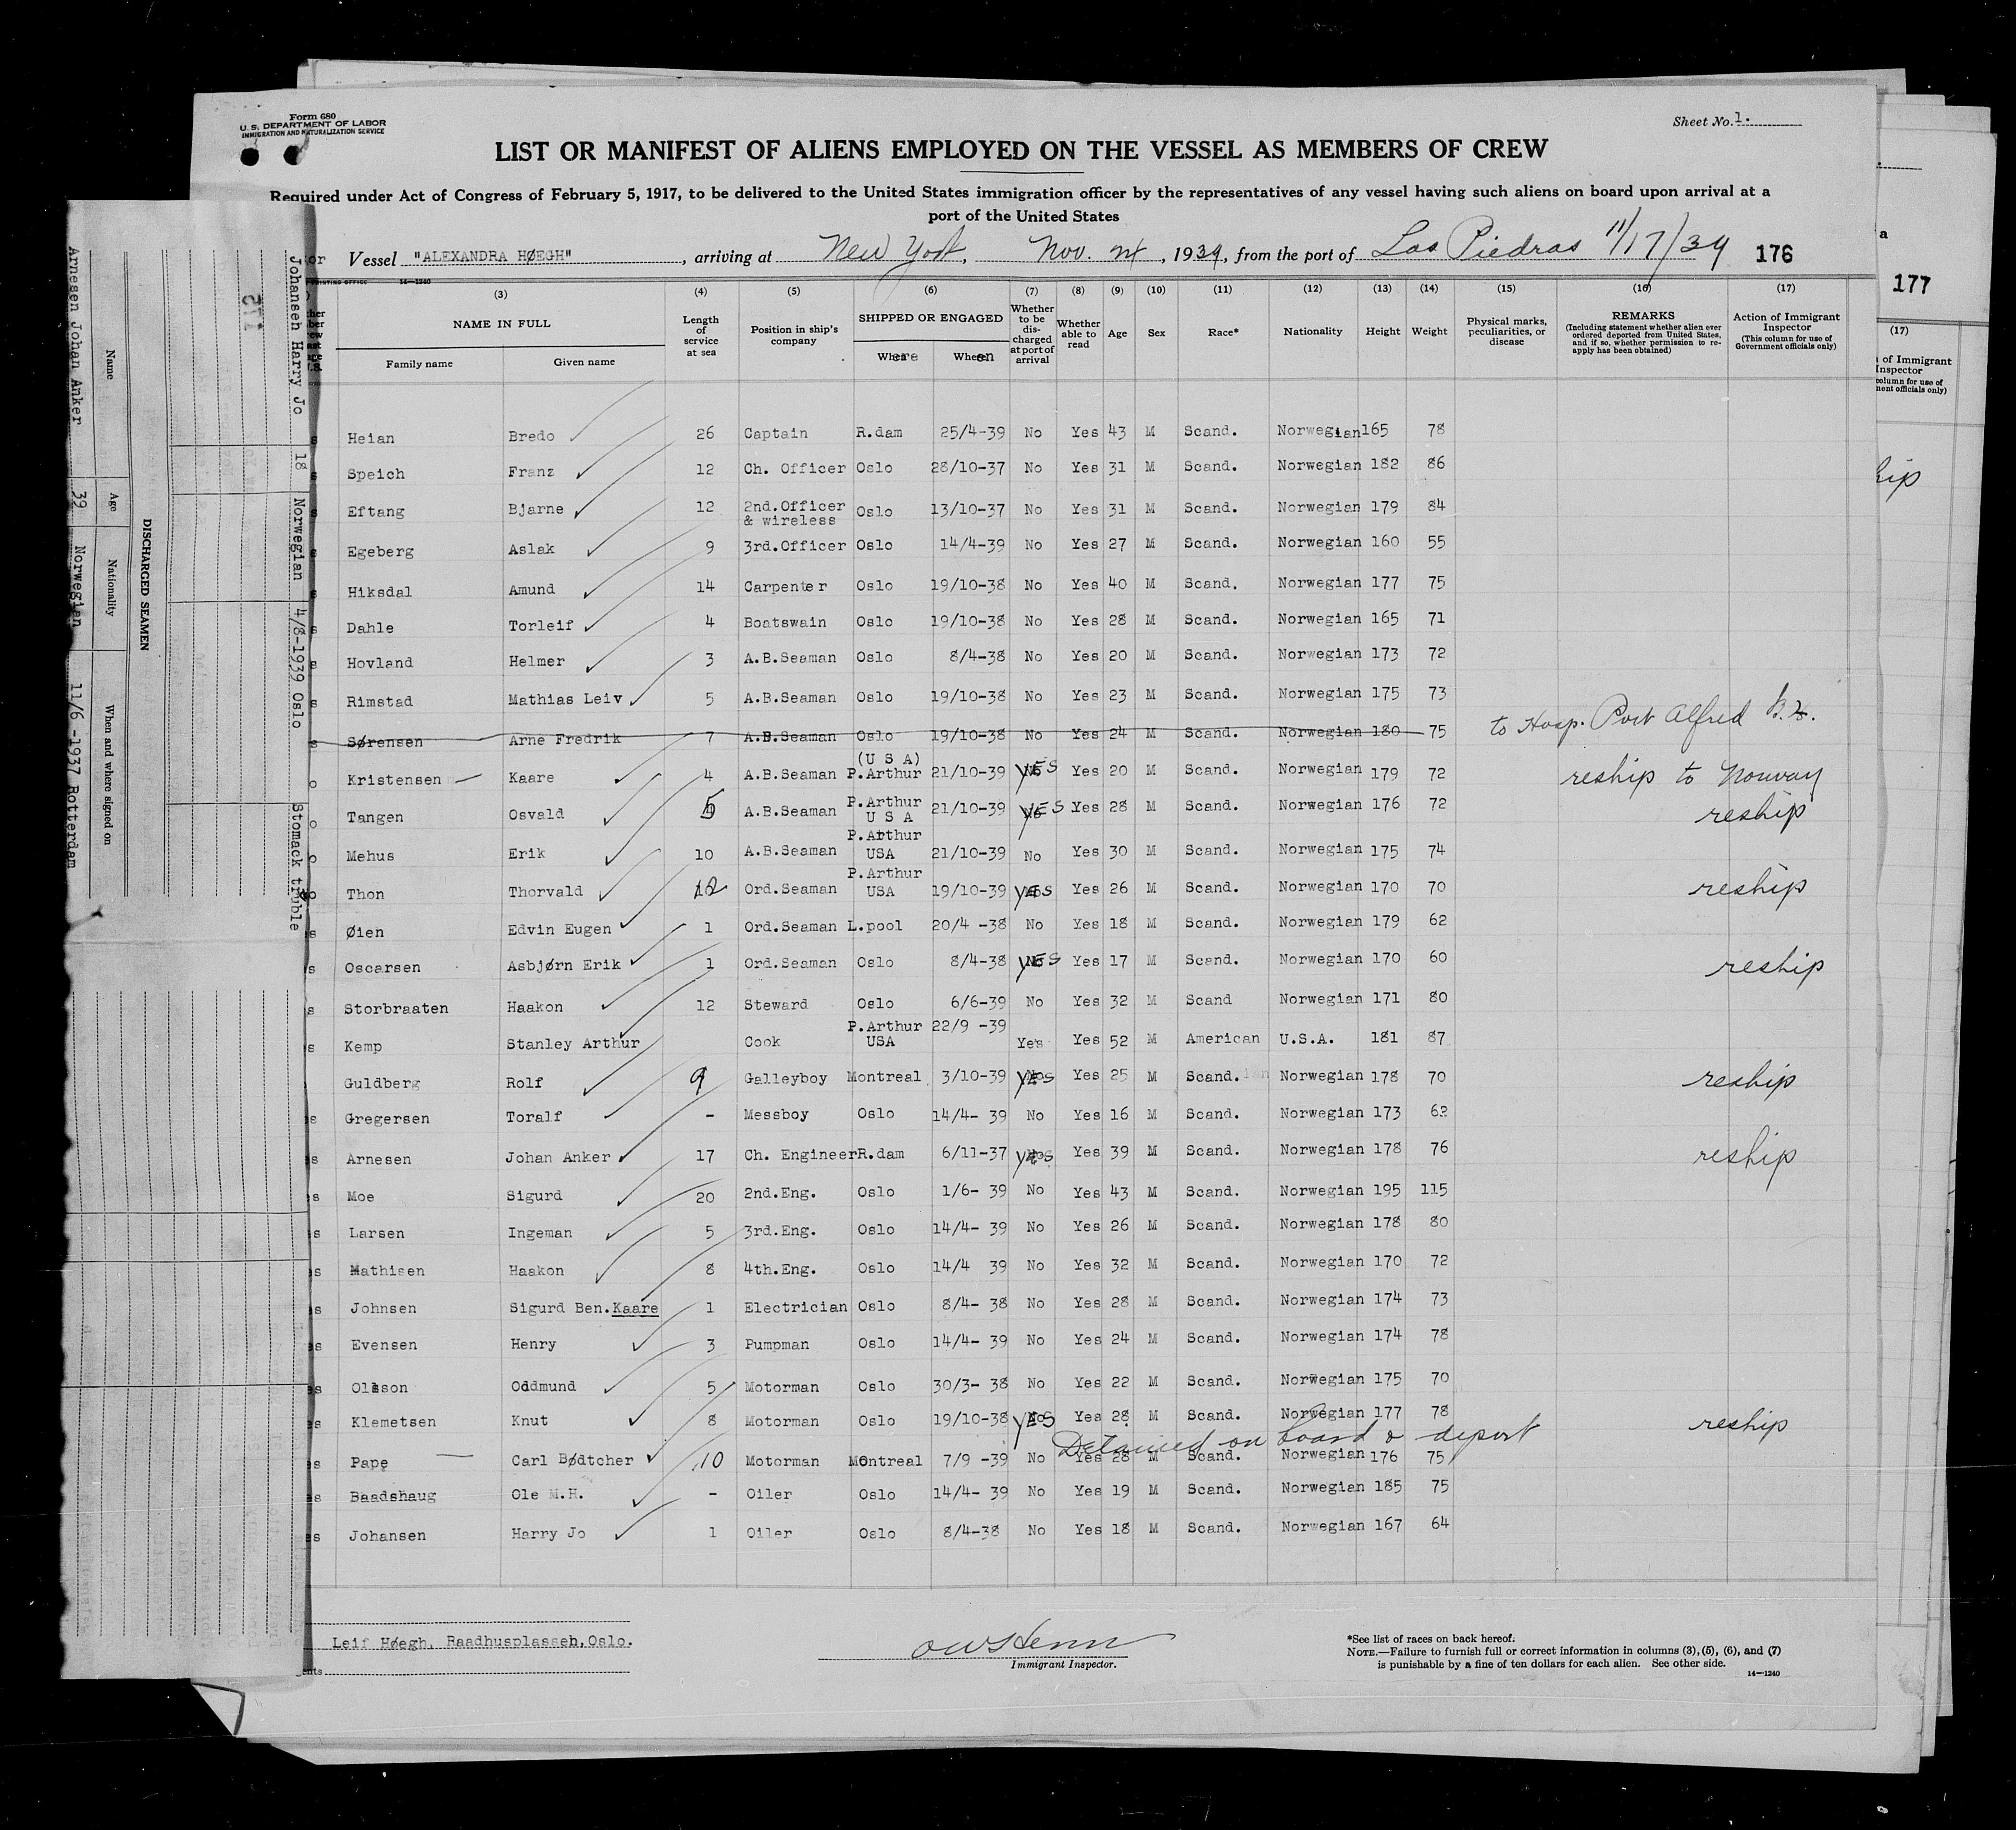 Form 680
U. S. DEPARTMENT OF LABOR
IMMIGRATION AND NATURALIZATION SERVICE
Sheet No. 1.
LIST OR MANIFEST OF ALIENS EMPLOYED ON THE VESSEL AS MEMBERS OF CREW
Required under Act of Congress of February 5, 1917, to be delivered to the United States immigration officer by the representatives of any vessel having such aliens on board upon arrival at a
port of the United States
Vessel "ALEXANDRA HØEGH", arriving at New York, Nov. 24, 1939, from the port of Las Piedras 11/17/39 176
177
14—1240
(3) (4) (5) (6) (7) (8) (9) (10) (11) (12) (13) (14) (15) (16) (17)
NAME IN FULL Length of service at sea Position in ship's company SHIPPED OR ENGAGED Whether to be discharged at port of arrival Whether able to read Age Sex Race* Nationality Height Weight Physical marks, peculiarities, or disease REMARKS (Including statement whether alien ever ordered deported from United States, and if so, whether permission to reapply has been obtained) Action of Immigrant Inspector (This column for use of Government officials only)
Family name Given name Where When
Heian Bredo 26 Captain R.dam 25/4-39 No Yes 43 M Scand. Norwegian 165 78
Speich Franz 12 Ch. Officer Oslo 28/10-37 No Yes 31 M Scand. Norwegian 182 86
Eftang Bjarne 12 2nd.Officer & wireless Oslo 13/10-37 No Yes 31 M Scand. Norwegian 179 84
Egeberg Aslak 9 3rd.Officer Oslo 14/4-39 No Yes 27 M Scand. Norwegian 160 55
Hiksdal Amund 14 Carpenter Oslo 19/10-38 No Yes 40 M Scand. Norwegian 177 75
Dahle Torleif 4 Boatswain Oslo 19/10-38 No Yes 28 M Scand. Norwegian 165 71
Hovland Helmer 3 A.B.Seaman Oslo 8/4-38 No Yes 20 M Scand. Norwegian 173 72
Rimstad Mathias Leiv 5 A.B.Seaman Oslo 19/10-38 No Yes 23 M Scand. Norwegian 175 73
Sørensen Arne Fredrik 7 A.B.Seaman Oslo 19/10-38 No Yes 24 M Scand. Norwegian 180 75 to Hosp. Port Alfred
Kristensen Kaare 4 A.B.Seaman (U S A) P.Arthur 21/10-39 YES Yes 20 M Scand. Norwegian 179 72 reship to Norway
Tangen Osvald 5 A.B.Seaman P.Arthur U S A 21/10-39 YES Yes 28 M Scand. Norwegian 176 72 reship
Mehus Erik 10 A.B.Seaman P.Arthur USA 21/10-39 No Yes 30 M Scand. Norwegian 175 74
Thon Thorvald 12 Ord.Seaman P.Arthur USA 19/10-39 YES Yes 26 M Scand. Norwegian 170 70 reship
Øien Edvin Eugen 1 Ord.Seaman L.pool 20/4 -38 No Yes 18 M Scand. Norwegian 179 62
Oscarsen Asbjørn Erik 1 Ord.Seaman Oslo 8/4-38 YES Yes 17 M Scand. Norwegian 170 60 reship
Storbraaten Haakon 12 Steward Oslo 6/6-39 No Yes 32 M Scand Norwegian 171 80
Kemp Stanley Arthur Cook P.Arthur USA 22/9 -39 Yes Yes 52 M American U.S.A. 181 87
Guldberg Rolf 9 Galleyboy Montreal 3/10-39 YES Yes 25 M Scand. Norwegian 178 70 reship
Gregersen Toralf - Messboy Oslo 14/4- 39 No Yes 16 M Scand. Norwegian 173 62
Arnesen Johan Anker 17 Ch. Engineer R.dam 6/11-37 YES Yes 39 M Scand. Norwegian 178 76 reship
Moe Sigurd 20 2nd.Eng. Oslo 1/6- 39 No Yes 43 M Scand. Norwegian 195 115
Larsen Ingeman 5 3rd.Eng. Oslo 14/4- 39 No Yes 26 M Scand. Norwegian 178 80
Mathisen Haakon 8 4th.Eng. Oslo 14/4 39 No Yes 32 M Scand. Norwegian 170 72
Johnsen Sigurd Ben.Kaare 1 Electrician Oslo 8/4- 38 No Yes 28 M Scand. Norwegian 174 73
Evensen Henry 3 Pumpman Oslo 14/4- 39 No Yes 24 M Scand. Norwegian 174 78
Olsson Oddmund 5 Motorman Oslo 30/3- 38 No Yes 22 M Scand. Norwegian 175 70
Klemetsen Knut 8 Motorman Oslo 19/10-38 YES Yes 28 M Scand. Norwegian 177 78 reship
Detained on board & deport
Pape Carl Bødtcher 10 Motorman Montreal 7/9 -39 No Yes 28 M Scand. Norwegian 176 75
Baadshaug Ole M.H. - Oiler Oslo 14/4- 39 No Yes 19 M Scand. Norwegian 185 75
Johansen Harry Jo 1 Oiler Oslo 8/4-38 No Yes 18 M Scand. Norwegian 167 64
Leif Høegh, Raadhusplassen, Oslo.
Immigrant Inspector.
*See list of races on back hereof.
NOTE.—Failure to furnish full or correct information in columns (3), (5), (6), and (7)
is punishable by a fine of ten dollars for each alien. See other side.
14—1240
DISCHARGED SEAMEN
Name Age Nationality When and where signed on
Arnesen Johan Anker 39 Norwegian 11/6 -1937 Rotterdam
Johansen Harry Jo 18 Norwegian 4/8-1939 Oslo Stomack truble
112
(17)
of Immigrant
Inspector
column for use of
ment officials only)